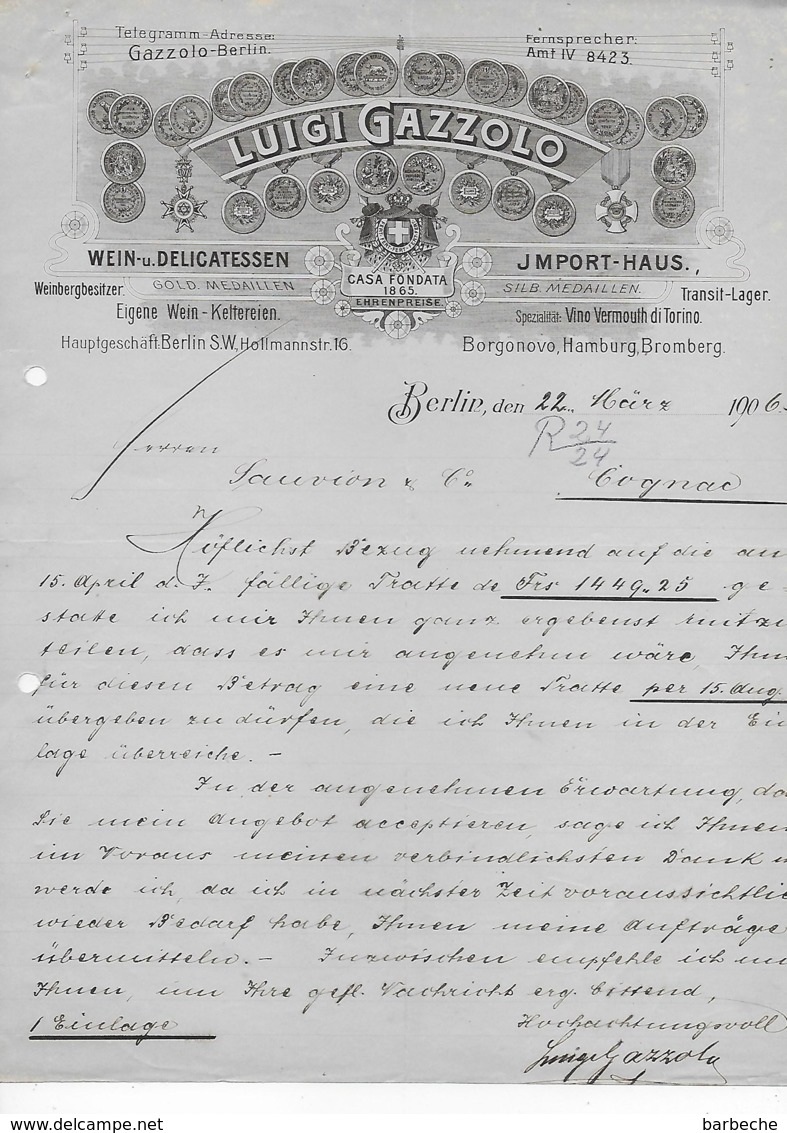 Telegramm-Adresse:
Gazzolo-Berlin.
Fernsprecher:
Amt IV 8423.
LUIGI GAZZOLO
WEIN-u. DELICATESSEN
JMPORT-HAUS.,
CASA FONDATA
1865.
EHRENPREISE.
Weinbergbesitzer.
GOLD. MEDAILLEN
SILB. MEDAILLEN.
Transit-Lager.
Eigene Wein-Keltereien.
Spezialität: Vino Vermouth di Torino.
Hauptgeschäft: Berlin S.W., Hollmannstr. 16.
Borgonovo, Hamburg, Bromberg.
Berlin, den 22. März 1906.
R 24
24
Herren
Sauvion & Co. Cognac
Höflichst Bezug nehmend auf die am
15. April d. J. fällige Tratte de Frs 1449.25 ge-
statte ich mir Ihnen ganz ergebenst mitzu
teilen, dass es mir angenehm wäre, Ihn
für diesen Betrag eine neue Tratte per 15. Aug.
übergeben zu dürfen, die ich Ihnen in der Ein
lage überreiche. –
In der angenehmen Erwartung, da
Sie mein Angebot acceptieren, sage ich Ihnen
im Voraus meinen verbindlichsten Dank u
werde ich, da ich in nächster Zeit voraussichtlic
wieder Bedarf habe, Ihnen meine Aufträge
übermitteln. – Inzwischen empfehle ich mi
Ihnen, um Ihre gefl. Nachricht erg. bittend,
1 Einlage
Hochachtungsvoll
Luigi Gazzolo
barbeche